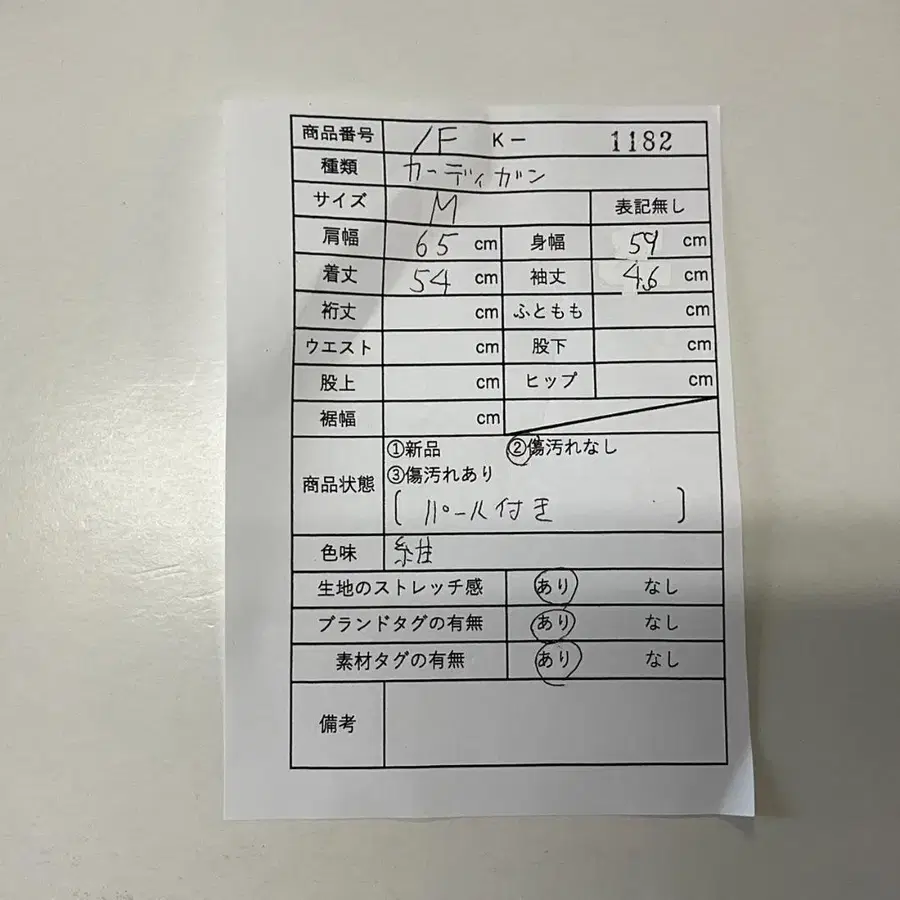 商品番号 1F K- 1182
種類 カーディガン
サイズ M 表記無し
肩幅 65 cm 身幅 59 cm
着丈 54 cm 袖丈 46 cm
裄丈 cm ふともも cm
ウエスト cm 股下 cm
股上 cm ヒップ cm
裾幅 cm
商品状態 ①新品 ②傷汚れなし
③傷汚れあり
[ パール付き ]
色味
生地のストレッチ感 あり なし
ブランドタグの有無 あり なし
素材タグの有無 あり なし
備考